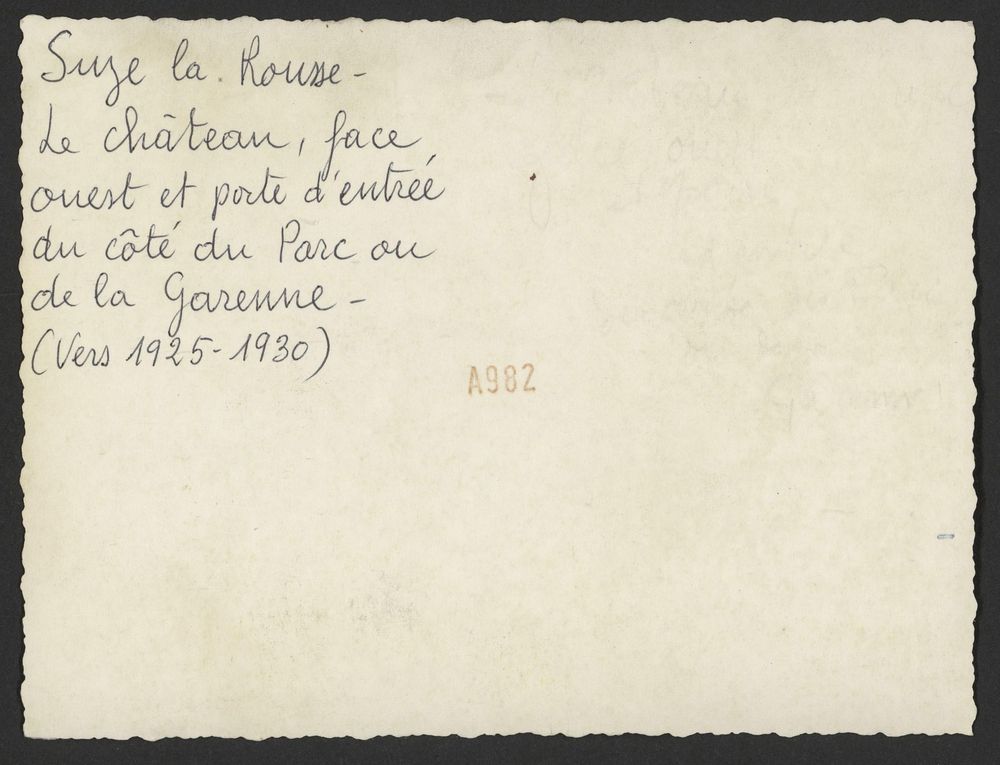 Suze la Rousse -
Le château, face
ouest et porte d'entrée
du côté du Parc ou
de la Garenne -
(Vers 1925-1930)
A982